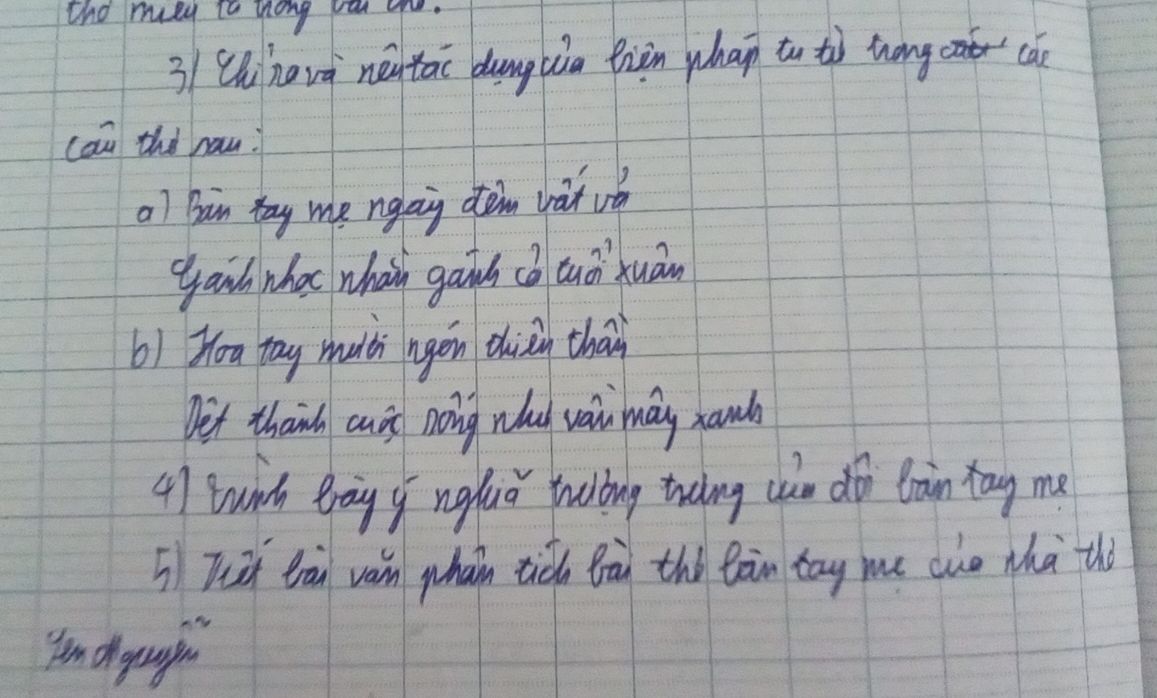 thơ miêu tả trong bài thơ.
3) Chỉ ra và nêu tác dụng của biện pháp tu từ trong các
câu thơ sau:
a) Bàn tay mẹ ngày đêm vất vả
Gánh nhọc nhằn gánh cả tuổi xuân
b) Hoa tay mười ngón thiên thần
Dệt thành cuộc sống như vần mây xanh
4) Trình bày ý nghĩa tượng trưng của đôi bàn tay mẹ
5) Viết bài văn phân tích bài thơ bàn tay mẹ của nhà thơ
Nguyễn